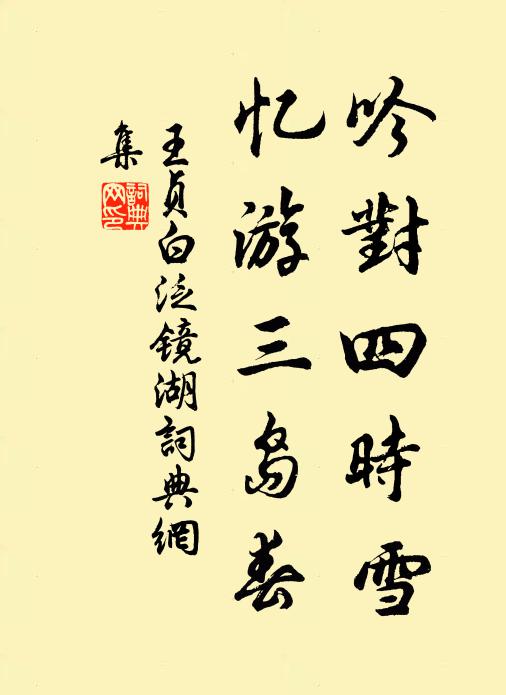 吟對四時雪
忆游三岛春
王贞白泛镜湖詞典網
集
詞典网印